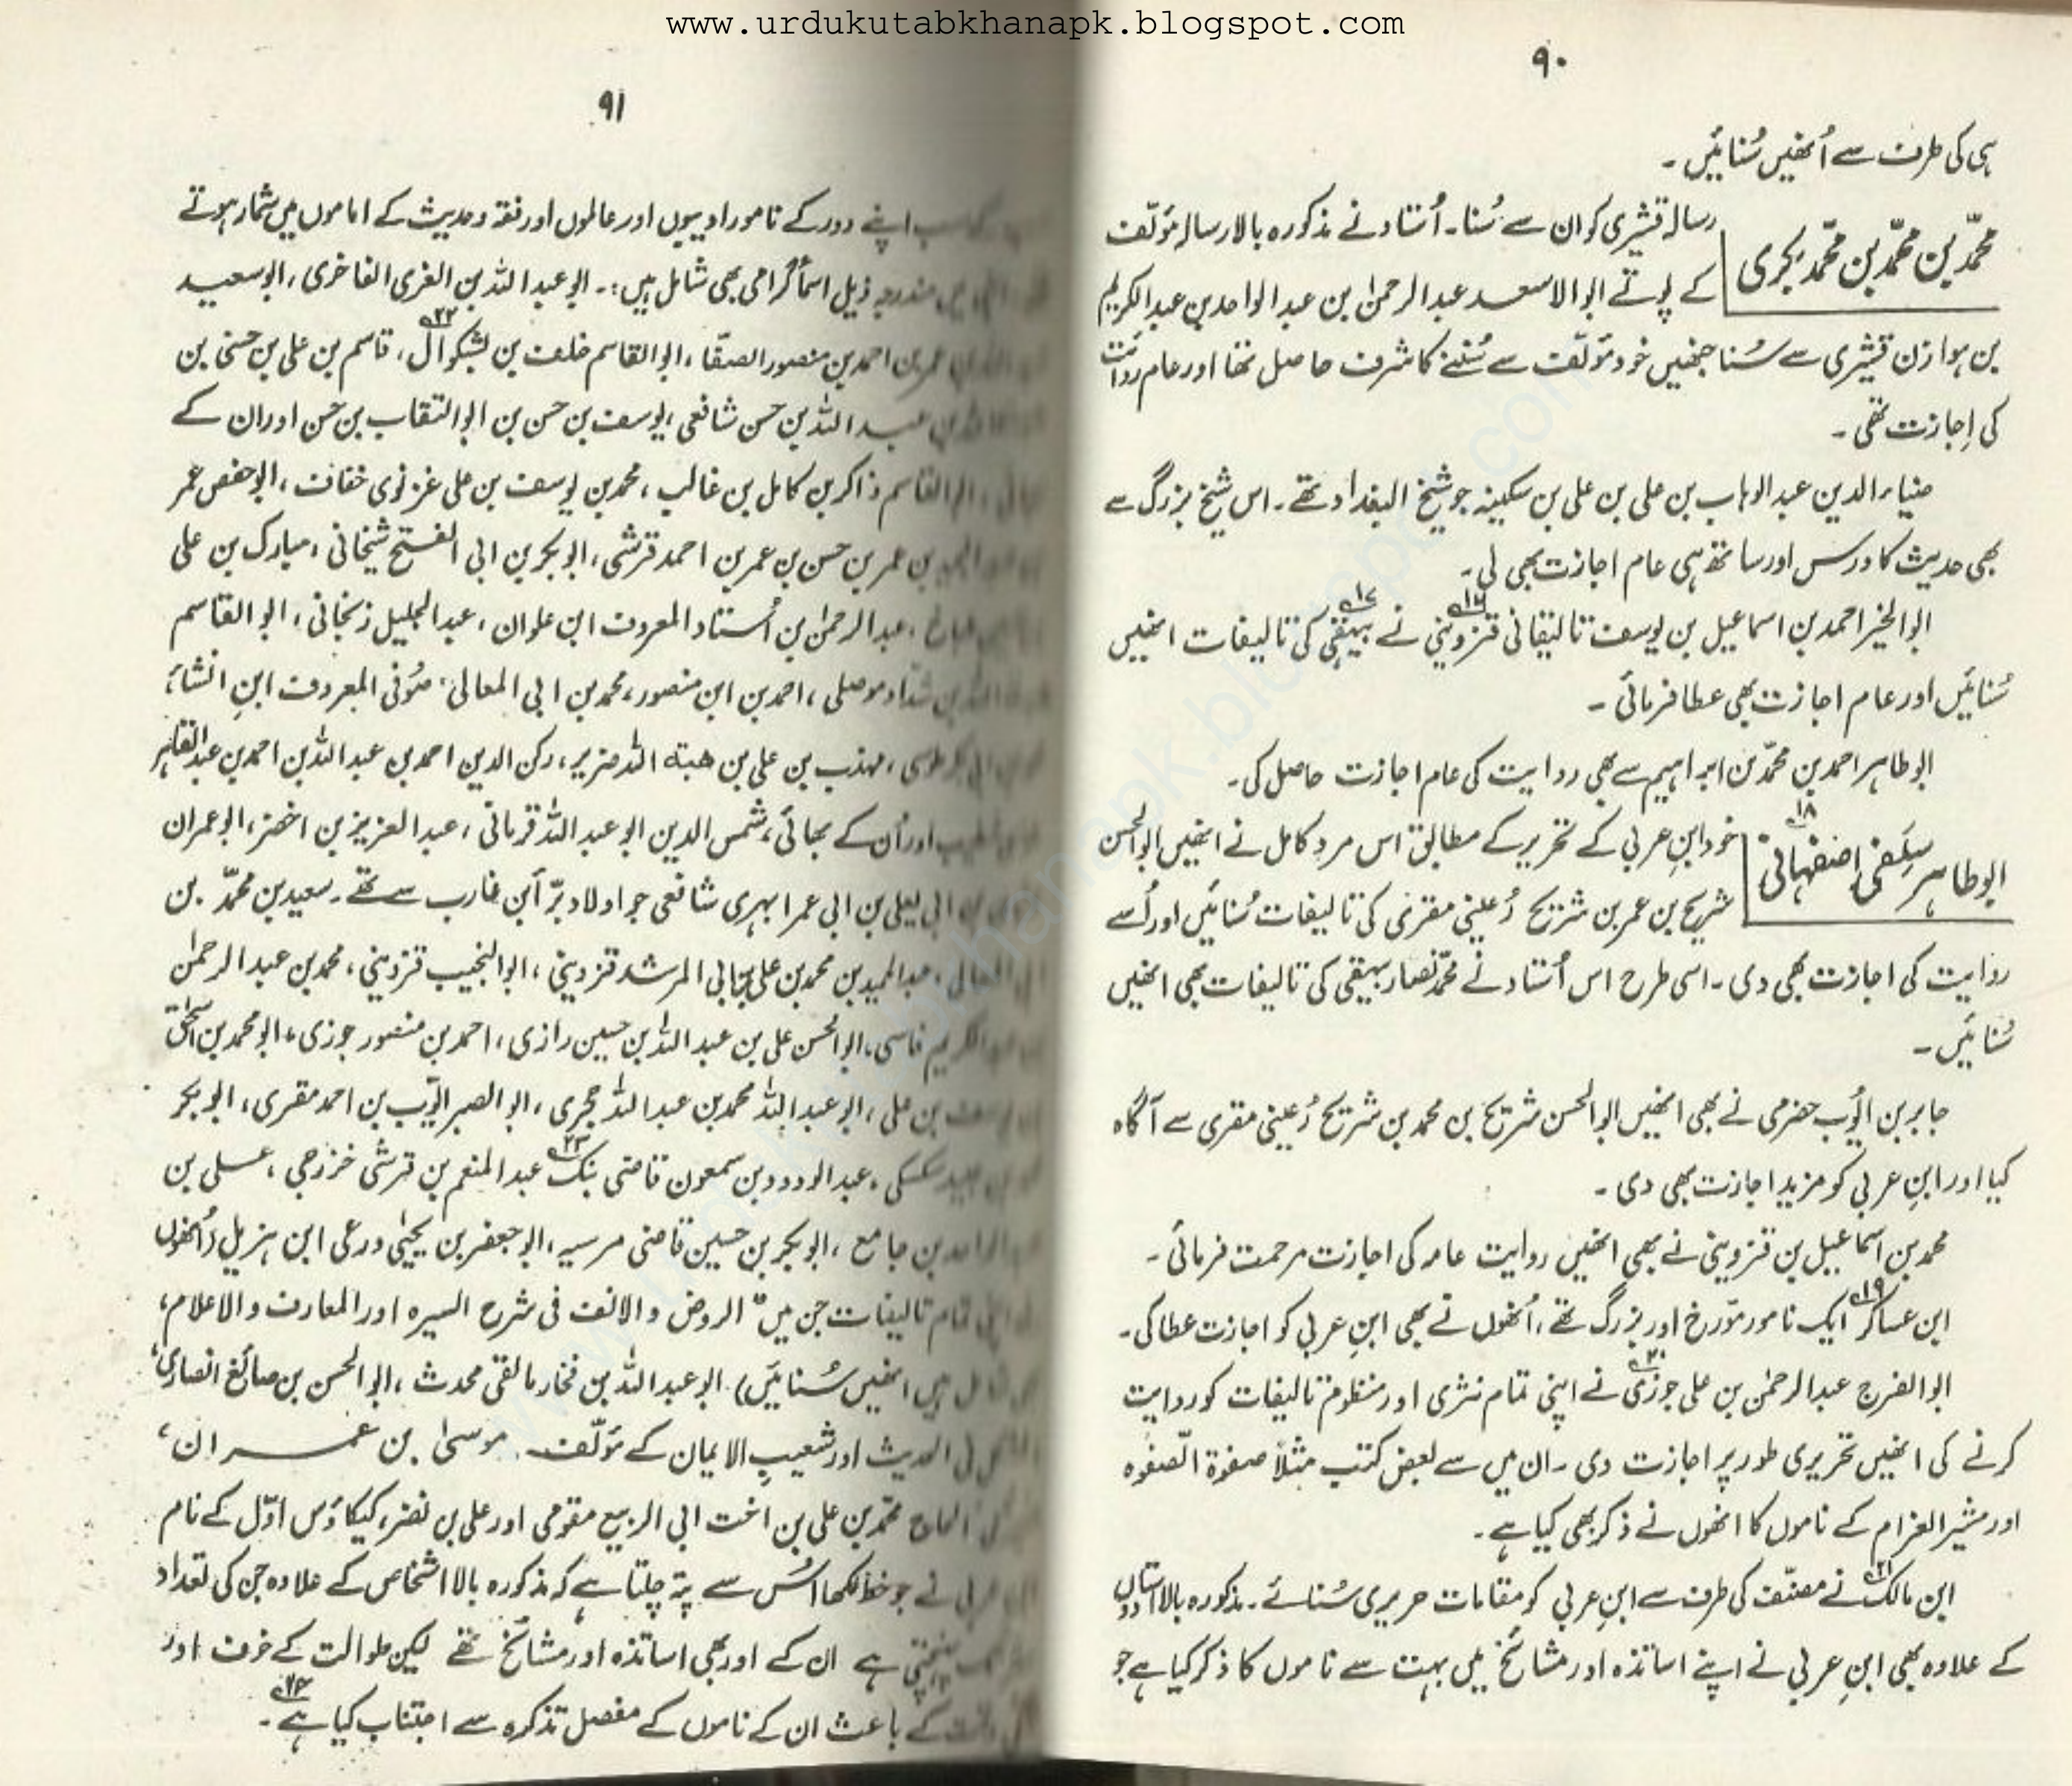 www.urdukutabkhanapk.blogspot.com
۹۰
ہی کی طرف سے اُنھیں سُنائیں۔
محمّد بن محمّد بن محمّد بکری
رسالہ قشیری کو ان سے سُنا۔ اُستاد نے مذکورہ بالا رسالہ مؤلّف
کے پوتے ابوالاسعد عبدالرحمٰن بن عبدالواحد بن عبدالکریم
بن ہوازن قشیری سے سُنا جنھیں خود مؤلّف سے سُننے کا شرف حاصل تھا اور عام روایت
کی اِجازت تھی۔
ضیاء الدین عبدالوہاب بن علی بن علی بن سکینہ جو شیخ البغداد تھے۔ اس شیخ بزرگ سے
بھی حدیث کا درس اور ساتھ ہی عام اجازت بھی لی۔
ابوالخیر احمد بن اسماعیل بن یوسف تالیقانی قزوینی ۱۶ نے بیہقی ۱۷ کی تالیفات انھیں
سُنائیں اور عام اجازت بھی عطا فرمائی۔
ابوطاہر احمد بن محمّد بن ابراہیم سے بھی روایت کی عام اجازت حاصل کی۔
ابوطاہر سِلَفی اصفہانی ۱۸
خود ابنِ عربی کے تحریر کے مطابق اس مرد کامل نے انھیں ابوالحسن
شریح بن عمر بن شریح رُعینی مقری کی تالیفات سُنائیں اور اُسے
روایت کی اجازت بھی دی۔ اسی طرح اس اُستاد نے محمّد نصار بیہقی کی تالیفات بھی انھیں
سُنائیں۔
جابر بن ایُوب حضرمی نے بھی انھیں ابوالحسن شریح بن محمد بن شریح رُعینی مقری سے آگاہ
کیا اور ابنِ عربی کو مزید اجازت بھی دی۔
محمد بن اسماعیل بن قزوینی نے بھی انھیں روایت عامہ کی اجازت مرحمت فرمائی۔
ابن عساکر ۱۹ ایک نامور مؤرخ اور بزرگ تھے، اُنھوں نے بھی ابنِ عربی کو اجازت عطا کی۔
ابوالفرج عبدالرحمٰن بن علی جوزی ۲۰ نے اپنی تمام نثری اور منظوم تالیفات کو روایت
کرنے کی انھیں تحریری طور پر اجازت دی۔ ان میں سے بعض کتب مثلاً صفوۃ الصّفوہ
اور مثیر الغرام کے ناموں کا انھوں نے ذکر بھی کیا ہے۔
ابن مالک ۲۱ نے مصنّف کی طرف سے ابنِ عربی کو مقامات حریری سُنائے۔ مذکورہ بالا استادوں
کے علاوہ بھی ابنِ عربی نے اپنے اساتذہ اور مشائخ میں بہت سے ناموں کا ذکر کیا ہے جو
۹۱
سب اپنے دور کے نامور ادیبوں اور عالموں اور فقہ و حدیث کے اماموں میں شمار ہوتے
مندرجہ ذیل اسماً گرامی بھی شامل ہیں:۔ ابوعبداللہ بن الغزی الفاخری، ابوسعید
عمر بن احمد بن منصور الصفّا، ابوالقاسم خلف بن بشکوال ۲۲، قاسم بن علی بن حسنی بن
عبداللہ بن حسن شافعی، یوسف بن حسن بن ابوالنقاب بن حسن اور ان کے
ابوالقاسم ذاکر بن کامل بن غالب، محمد بن یوسف بن علی غزنوی خفاف، ابوحفص عمر
بن عمر بن حسن بن عمر بن احمد قرشی، ابوبکر بن ابی الفتح شیخانی، مبارک بن علی
عبدالرحمٰن بن اُستاد المعروف ابن علوان، عبدالجلیل زنجانی، ابوالقاسم
بن شداد موصلی، احمد بن ابن منصور، محمد بن ابی المعالی، صُوفی المعروف ابنِ الثناء،
طوسی، مہذب بن علی بن ھبۃ اللہ ضریر، رکن الدین احمد بن عبداللہ بن احمد بن عبدالقاہر
اور اُن کے بھائی، شمس الدین ابوعبداللہ قرمانی، عبدالعزیز بن اخضر، ابوعمران
بن ابی یعلی بن ابی عمر ابہری شافعی جو اولاد برّا بن عازب سے تھے۔ سعید بن محمّد بن
المعالی، عبدالحمید بن محمد بن علی بن ابی المرشد قزوینی، ابوالنجیب قزوینی، محمد بن عبدالرحمٰن
فاسی، ابوالحسن علی بن عبداللہ بن حسین رازی، احمد بن منصور جوزی، ابومحمد بن اسحٰق
بن علی، ابوعبداللہ محمد بن عبداللہ حجری، ابوالصبر ایّوب بن احمد مقری، ابوبکر
سکسکی، عبدالودود بن سمعون قاضی بنک ۲۳ عبدالمنعم بن قرشی خزرجی، علی بن
بن جامع، ابوبکر بن حسین قاضی مرسیہ، ابوجعفر بن یحییٰ ورعی ابن ہزیل (اُنھوں
تمام تالیفات جن میں "الروض والانف فی شرح السیرہ اور المعارف والاعلام،
ہیں انھیں سُنائیں) ابوعبداللہ بن فخار مالقی محدث، ابوالحسن بن صائغ انصاری،
فی الحدیث اور شعیب الایمان کے مؤلّف، موسیٰ بن عمران،
الحاج محمّد بن علی بن اخت ابی الربیع مقومی اور علی بن نضر، کیکاؤس اوّل کے نام
عربی نے جو خط لکھا اُس سے پتہ چلتا ہے کہ مذکورہ بالا اشخاص کے علاوہ جن کی تعداد
پہنچتی ہے ان کے اور بھی اساتذہ اور مشائخ تھے لیکن طوالت کے خوف اور
کے باعث ان کے ناموں کے مفصل تذکرہ سے اجتناب کیا ہے ۲۴۔